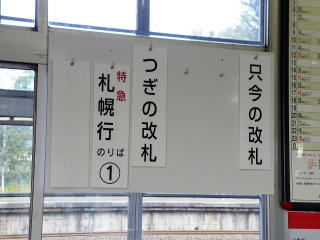 只今の改札
つぎの改札
特急
札幌行
のりば
①